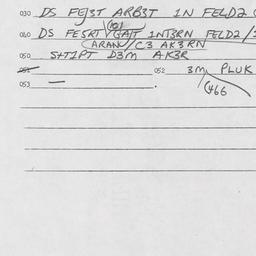 030 DS FEJ3T ARB3T 1N FELD2
101
040 DS FE5KT GAJT 1NT3RN FELD2/1
ARAN/C3 AK3RN
050 S+T1PT D3M AK3R
051 052 3M, PLUK
053 — . 466